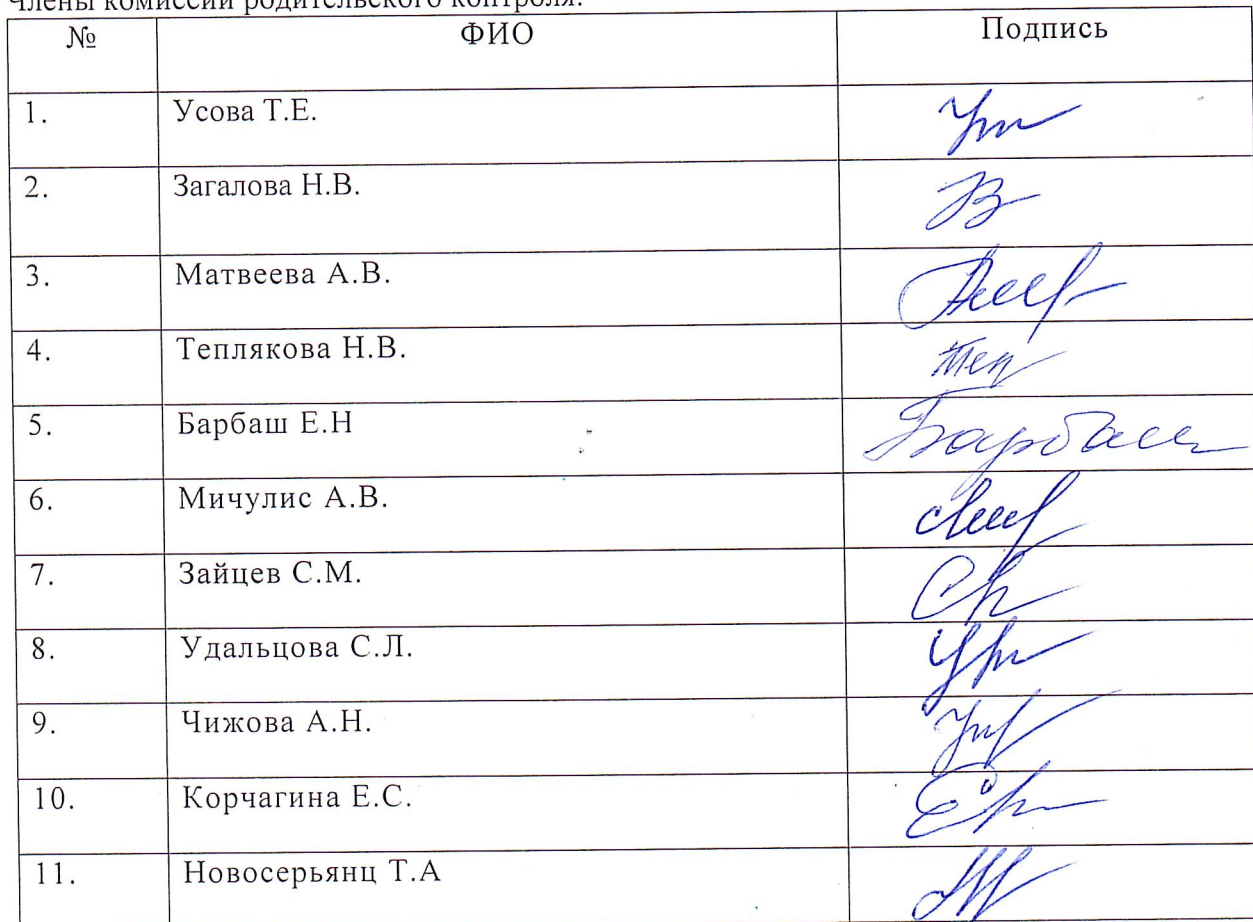 Члены комиссии родительского контроля:
№ ФИО Подпись
1. Усова Т.Е.
2. Загалова Н.В.
3. Матвеева А.В.
4. Теплякова Н.В. Теп
5. Барбаш Е.Н Барбаш
6. Мичулис А.В.
7. Зайцев С.М.
8. Удальцова С.Л.
9. Чижова А.Н.
10. Корчагина Е.С.
11. Новосерьянц Т.А